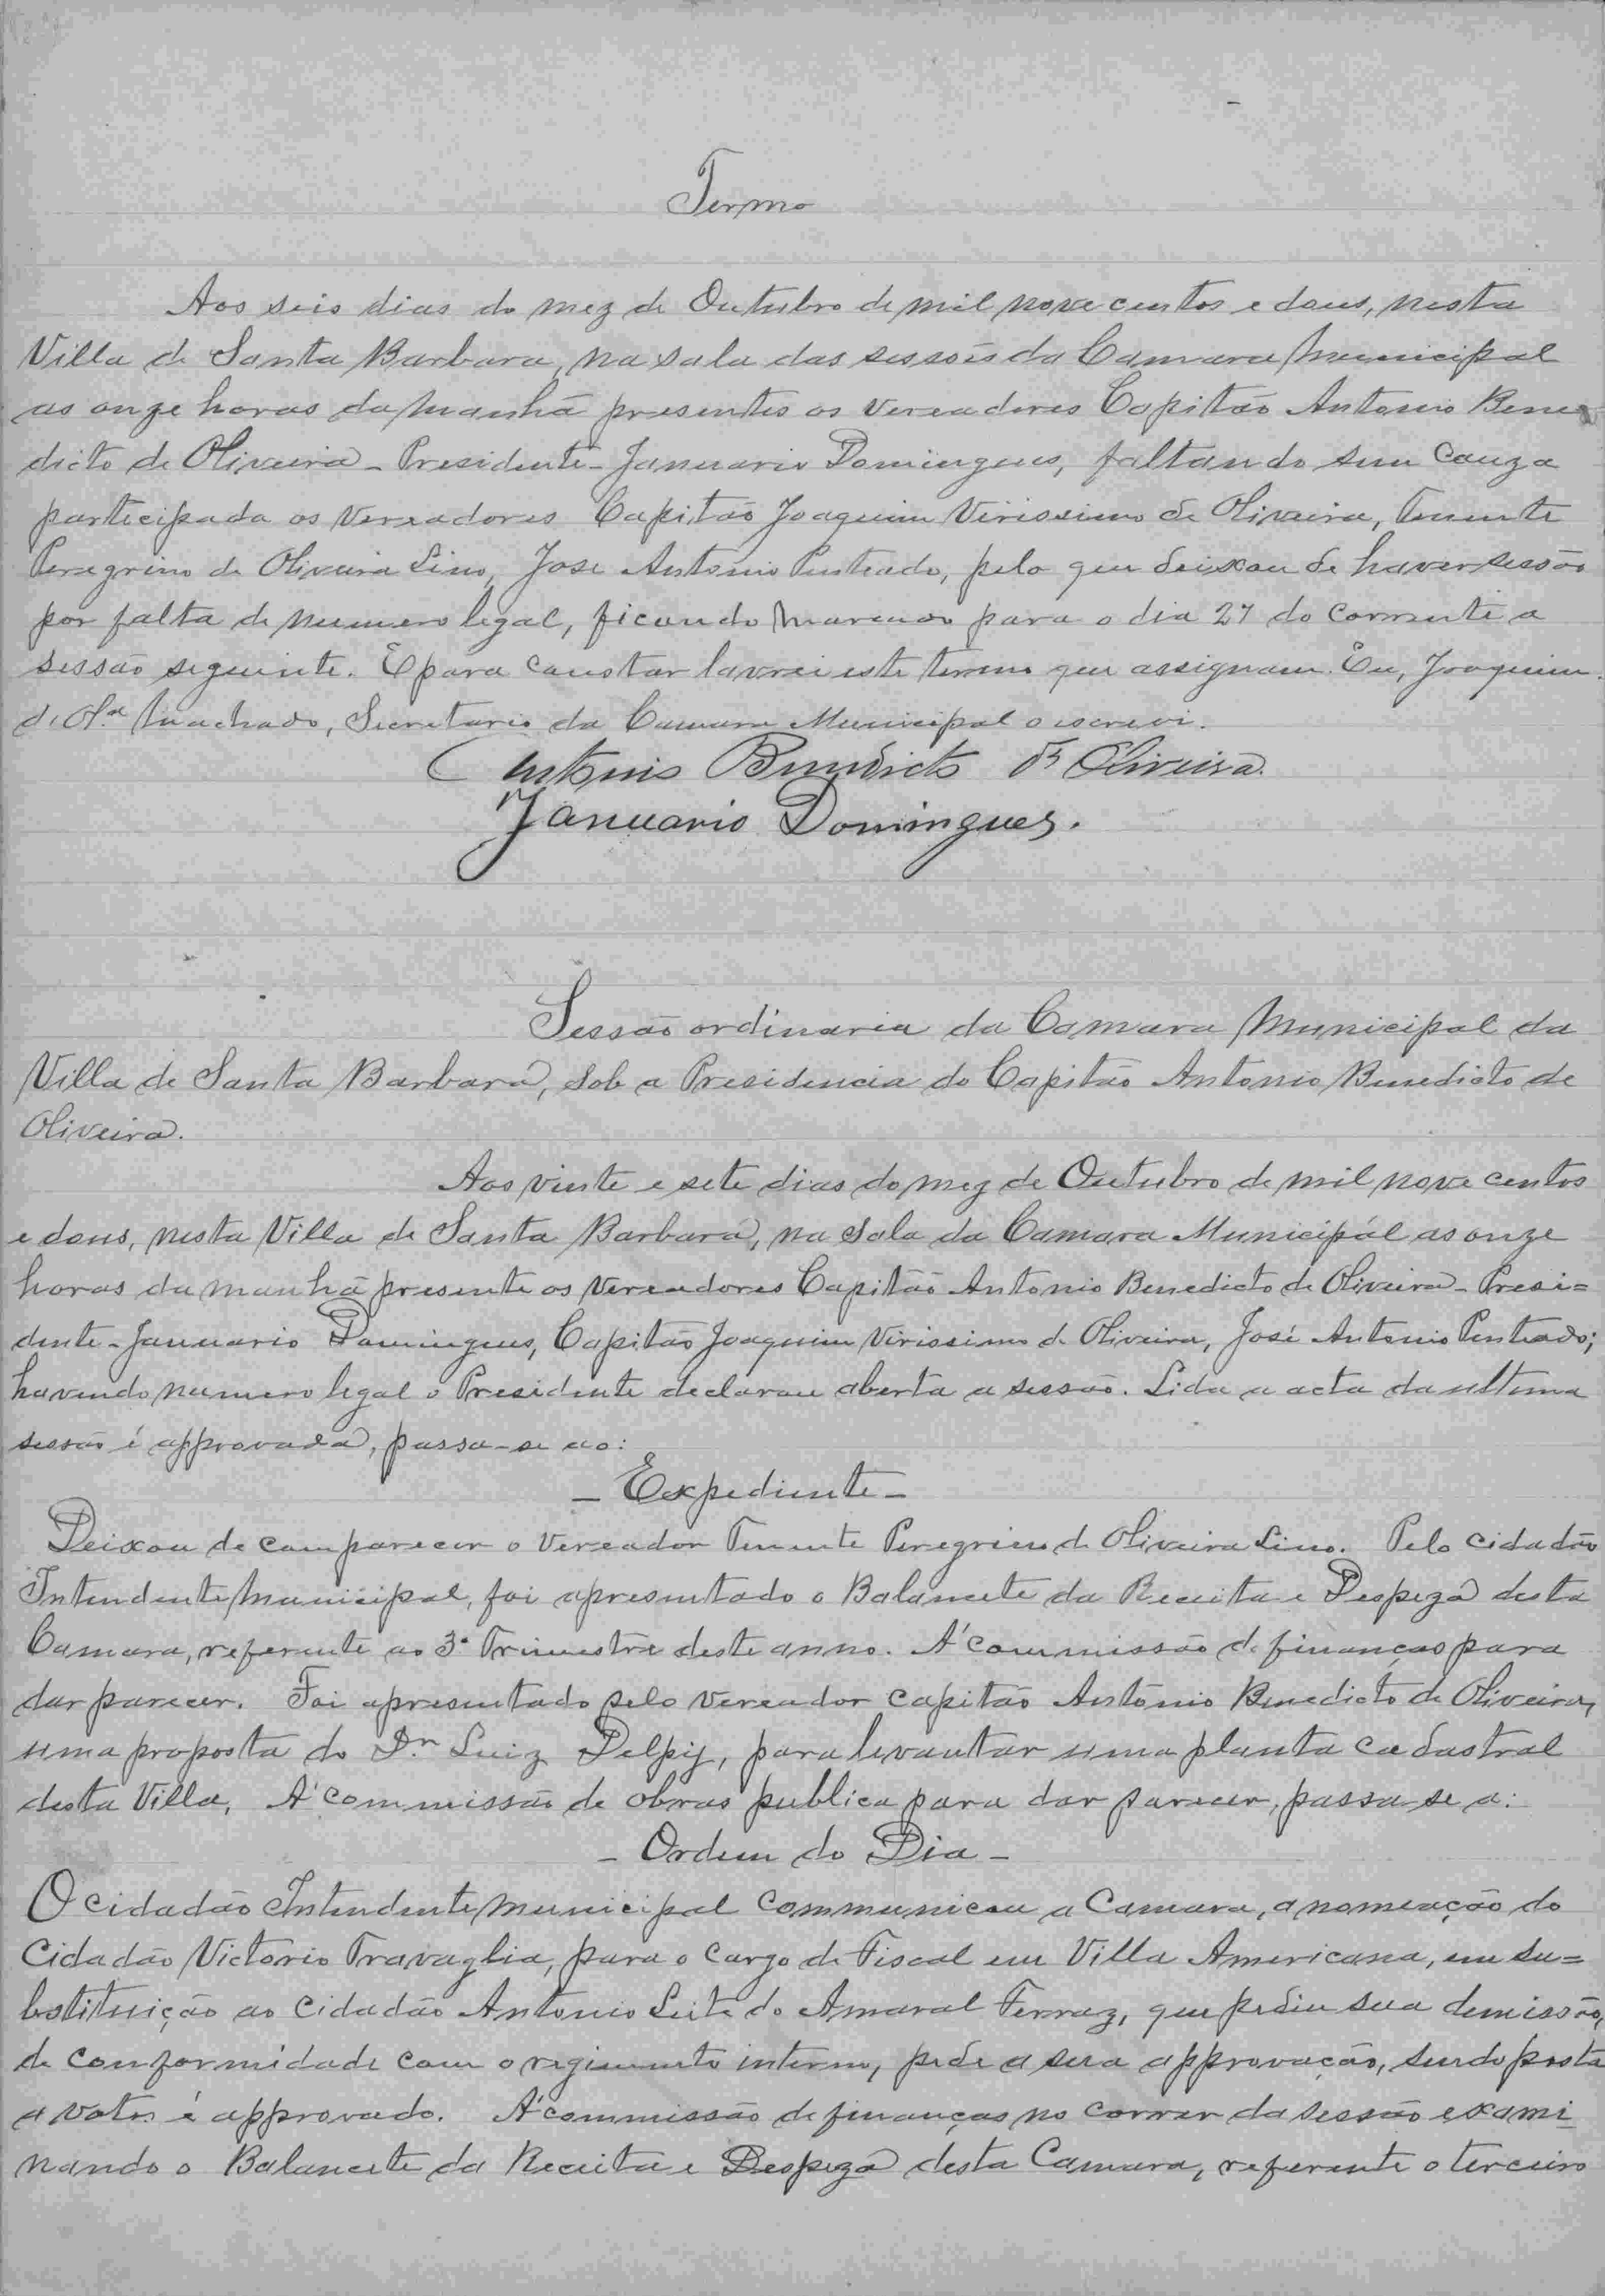 Termo
Aos seis dias do mez de Outubro de mil nove centos e dous, nesta
Villa de Santa Barbara, na sala das sessões da Camara Municipal
as onze horas da manhã presentes os Vereadores Capitão Antonio Bene
dicto de Oliveira - Presidente - Januario Domingues, faltando sem cauza
participada os Vereadores Capitão Joaquim Virissimo de Oliveira, Tenente
Peregrino de Oliveira Lino, Jose Antonio Penteado, pelo que deixou de haver sessão
por falta de numero legal, ficando marcado para o dia 27 do corrente a
sessão seguinte. E para constar lavrei este termo que assignam. Eu, Joaquim
de Olª Machado, Secretario da Camara Municipal o escrevi.
Antonio Benedicto de Oliveira.
Januario Domingues.
Sessão ordinaria da Camara Municipal da
Villa de Santa Barbara, sob a Presidencia do Capitão Antonio Benedicto de
Oliveira.
Aos vinte e sete dias do mez de Outubro de mil nove centos
e dous, nesta Villa de Santa Barbara, na Sala da Camara Municipal as onze
horas da manhã presente os Vereadores Capitão Antonio Benedicto de Oliveira - Presi=
dente - Januario Domingues, Capitão Joaquim Virissimo de Oliveira, José Antonio Penteado;
havendo numero legal o Presidente declarou aberta a sessão. Lida a acta da ultima
sessão é approvada, passa-se ao:
- Expediente -
Deixou de comparecer o Vereador Tenente Peregrino de Oliveira Lino. Pelo cidadão
Intendente Municipal, foi apresentado o Balancete da Receita e Despeza desta
Camara, referente ao 3º Trimestre deste anno. A' Commissão de finanças para
dar parecer. Foi apresentado pelo Vereador Capitão Antonio Benedicto de Oliveira,
uma proposta do Dr. Luiz Delpij, para levantar uma planta cadastral
desta Villa, A' Commissão de obras publica para dar parecer, passa-se a:
- Ordem do Dia -
O cidadão Intendente Municipal communicou a Camara, a nomeação do
Cidadão Victorio Travaglia, para o cargo de Fiscal em Villa Americana, em su=
bstituição ao cidadão Antonio Leite do Amaral Ferraz, que pediu sua demissão,
de conformidade com o regimento interno, pede a sua approvação, sendo posta
a votos é approvado. A' commissão de finanças no correr da sessão exami
nando o Balancete da Receita e Despeza desta Camara, referente o terceiro